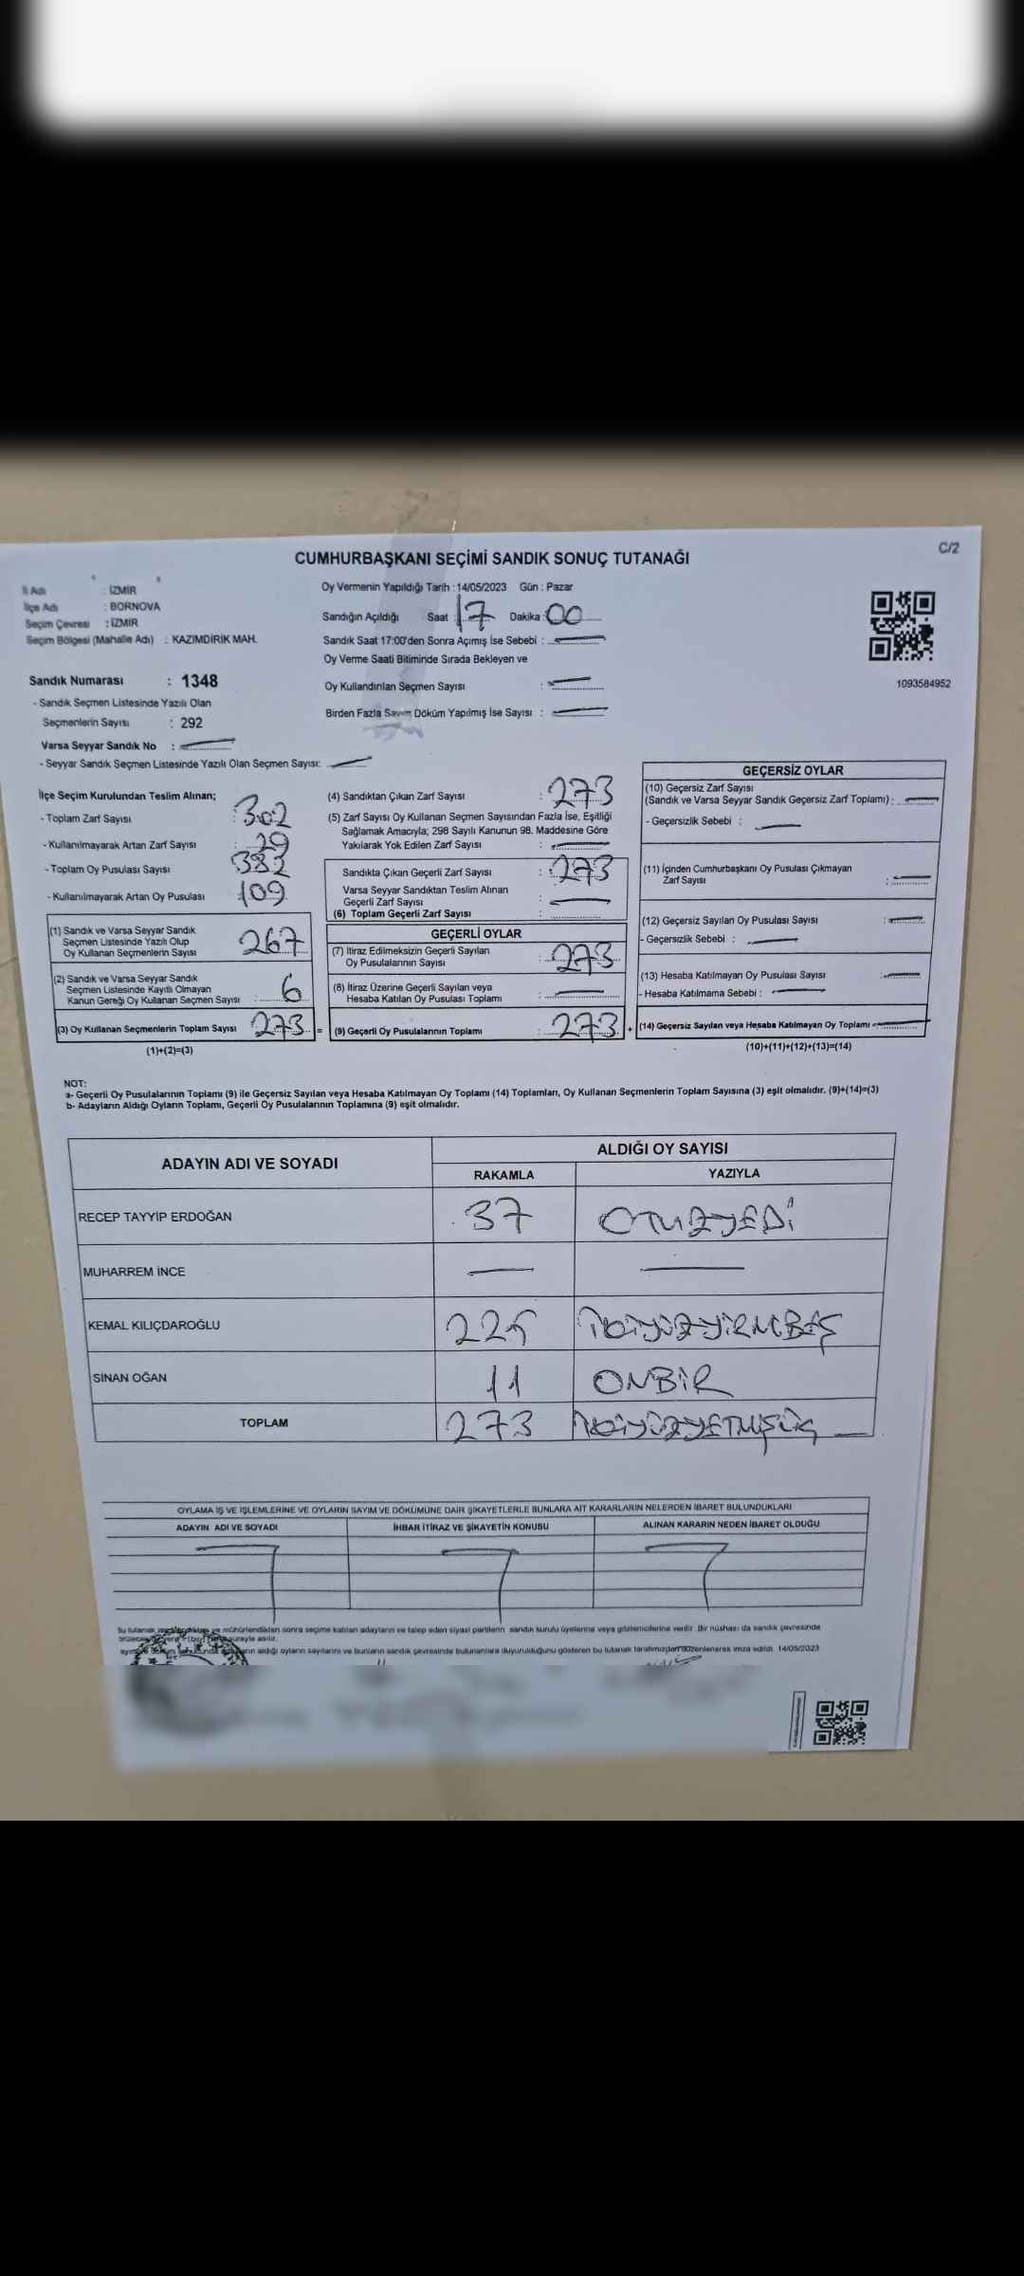 C/2
CUMHURBAŞKANI SEÇİMİ SANDIK SONUÇ TUTANAĞI
İl Adı : İZMİR
İlçe Adı : BORNOVA
Seçim Çevresi : İZMİR
Seçim Bölgesi (Mahalle Adı) : KAZIMDİRİK MAH.
Oy Vermenin Yapıldığı Tarih : 14/05/2023 Gün : Pazar
Sandığın Açıldığı Saat : 17 Dakika : 00
Sandık Saat 17:00'den Sonra Açımış İse Sebebi :
Oy Verme Saati Bitiminde Sırada Bekleyen ve
Oy Kullandırılan Seçmen Sayısı :
Birden Fazla Sayım Döküm Yapılmış İse Sayısı :
1093584952
Sandık Numarası : 1348
- Sandık Seçmen Listesinde Yazılı Olan
Seçmenlerin Sayısı : 292
Varsa Seyyar Sandık No :
- Seyyar Sandık Seçmen Listesinde Yazılı Olan Seçmen Sayısı:
İlçe Seçim Kurulundan Teslim Alınan;
- Toplam Zarf Sayısı : 302
- Kullanılmayarak Artan Zarf Sayısı : 29
- Toplam Oy Pusulası Sayısı : 382
- Kullanılmayarak Artan Oy Pusulası : 109
(1) Sandık ve Varsa Seyyar Sandık
Seçmen Listesinde Yazılı Olup
Oy Kullanan Seçmenlerin Sayısı 267
(2) Sandık ve Varsa Seyyar Sandık
Seçmen Listesinde Kayıtlı Olmayan
Kanun Gereği Oy Kullanan Seçmen Sayısı : 6
(3) Oy Kullanan Seçmenlerin Toplam Sayısı 273 =
(1)+(2)=(3)
(4) Sandıktan Çıkan Zarf Sayısı : 273
(5) Zarf Sayısı Oy Kullanan Seçmen Sayısından Fazla İse, Eşitliği
Sağlamak Amacıyla; 298 Sayılı Kanunun 98. Maddesine Göre
Yakılarak Yok Edilen Zarf Sayısı :
Sandıkta Çıkan Geçerli Zarf Sayısı : 273
Varsa Seyyar Sandıktan Teslim Alınan
Geçerli Zarf Sayısı :
(6) Toplam Geçerli Zarf Sayısı :
GEÇERLİ OYLAR
(7) İtiraz Edilmeksizin Geçerli Sayılan
Oy Pusulalarının Sayısı : 273
(8) İtiraz Üzerine Geçerli Sayılan veya
Hesaba Katılan Oy Pusulası Toplamı :
(9) Geçerli Oy Pusulalarının Toplamı : 273 +
GEÇERSİZ OYLAR
(10) Geçersiz Zarf Sayısı
(Sandık ve Varsa Seyyar Sandık Geçersiz Zarf Toplamı) :
- Geçersizlik Sebebi :
(11) İçinden Cumhurbaşkanı Oy Pusulası Çıkmayan
Zarf Sayısı :
(12) Geçersiz Sayılan Oy Pusulası Sayısı :
- Geçersizlik Sebebi :
(13) Hesaba Katılmayan Oy Pusulası Sayısı :
- Hesaba Katılmama Sebebi :
(14) Geçersiz Sayılan veya Hesaba Katılmayan Oy Toplamı
(10)+(11)+(12)+(13)=(14)
NOT:
a- Geçerli Oy Pusulalarının Toplamı (9) ile Geçersiz Sayılan veya Hesaba Katılmayan Oy Toplamı (14) Toplamları, Oy Kullanan Seçmenlerin Toplam Sayısına (3) eşit olmalıdır. (9)+(14)=(3)
b- Adayların Aldığı Oyların Toplamı, Geçerli Oy Pusulalarının Toplamına (9) eşit olmalıdır.
ADAYIN ADI VE SOYADI ALDIĞI OY SAYISI
RAKAMLA YAZIYLA
RECEP TAYYİP ERDOĞAN 37 OTUZYEDİ
MUHARREM İNCE
KEMAL KILIÇDAROĞLU 225 İKİYÜZYİRMİBEŞ
SİNAN OĞAN 11 ONBİR
TOPLAM 273 İKİYÜZYETMİŞÜÇ
OYLAMA İŞ VE İŞLEMLERİNE VE OYLARIN SAYIM VE DÖKÜMÜNE DAİR ŞİKAYETLERLE BUNLARA AİT KARARLARIN NELERDEN İBARET BULUNDUKLARI
ADAYIN ADI VE SOYADI İHBAR İTİRAZ VE ŞİKAYETİN KONUSU ALINAN KARARIN NEDEN İBARET OLDUĞU
Bu tutanak mühürlendikten sonra seçime katılan adayların ve talep eden siyasi partilerin sandık kurulu üyelerine veya gözlemcilerine verilir. Bir nüshası da sandık çevresinde
aldığı oyların sayılarını ve bunların sandık çevresinde bulunanlara duyurulduğunu gösteren bu tutanak tarafımızdan düzenlenerek imza edildi. 14/05/2023